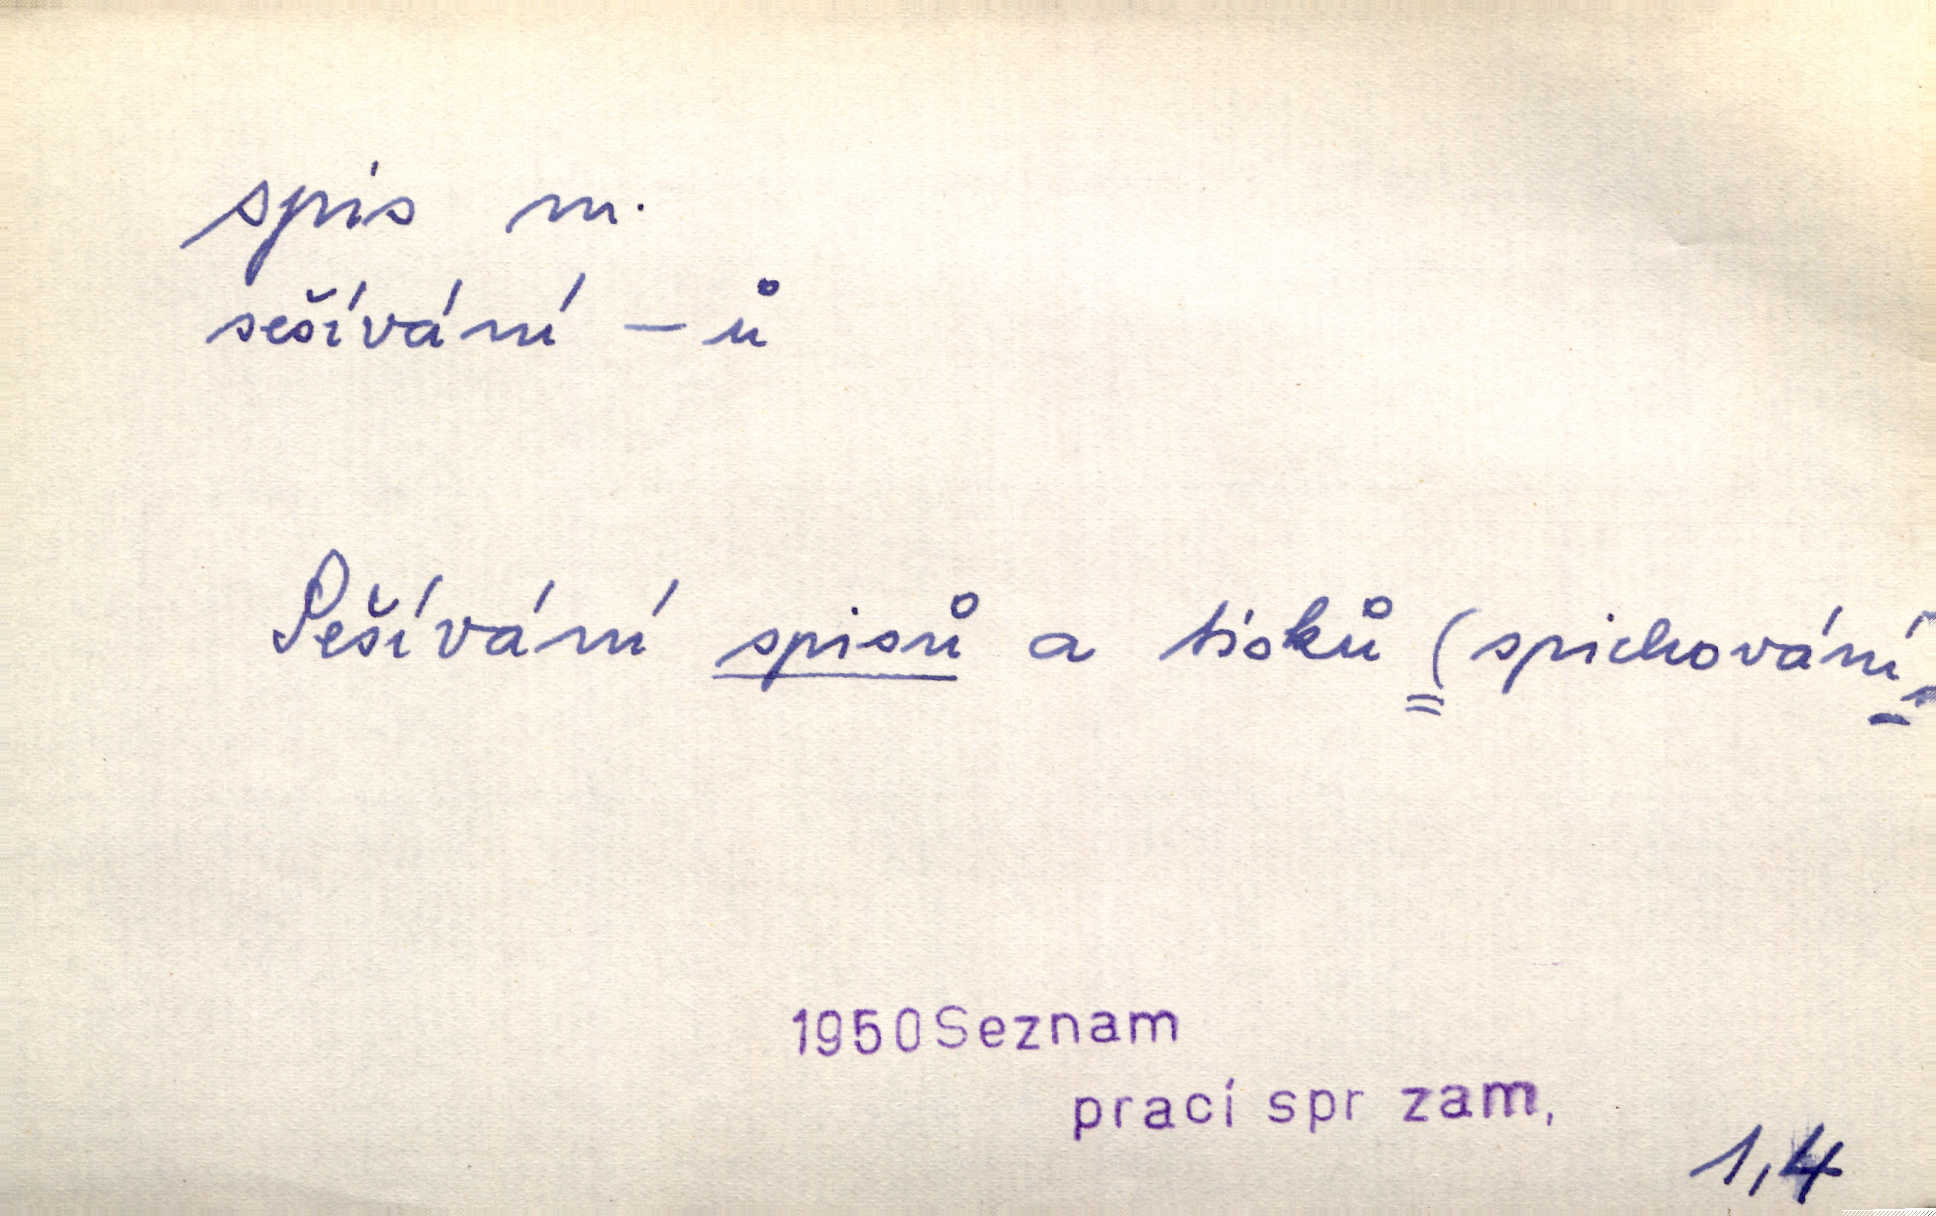 spis m.
sešívání – ů
Sešívání spisů a tisků (spichování)
1950 Seznam
prací spr zam,
1,4